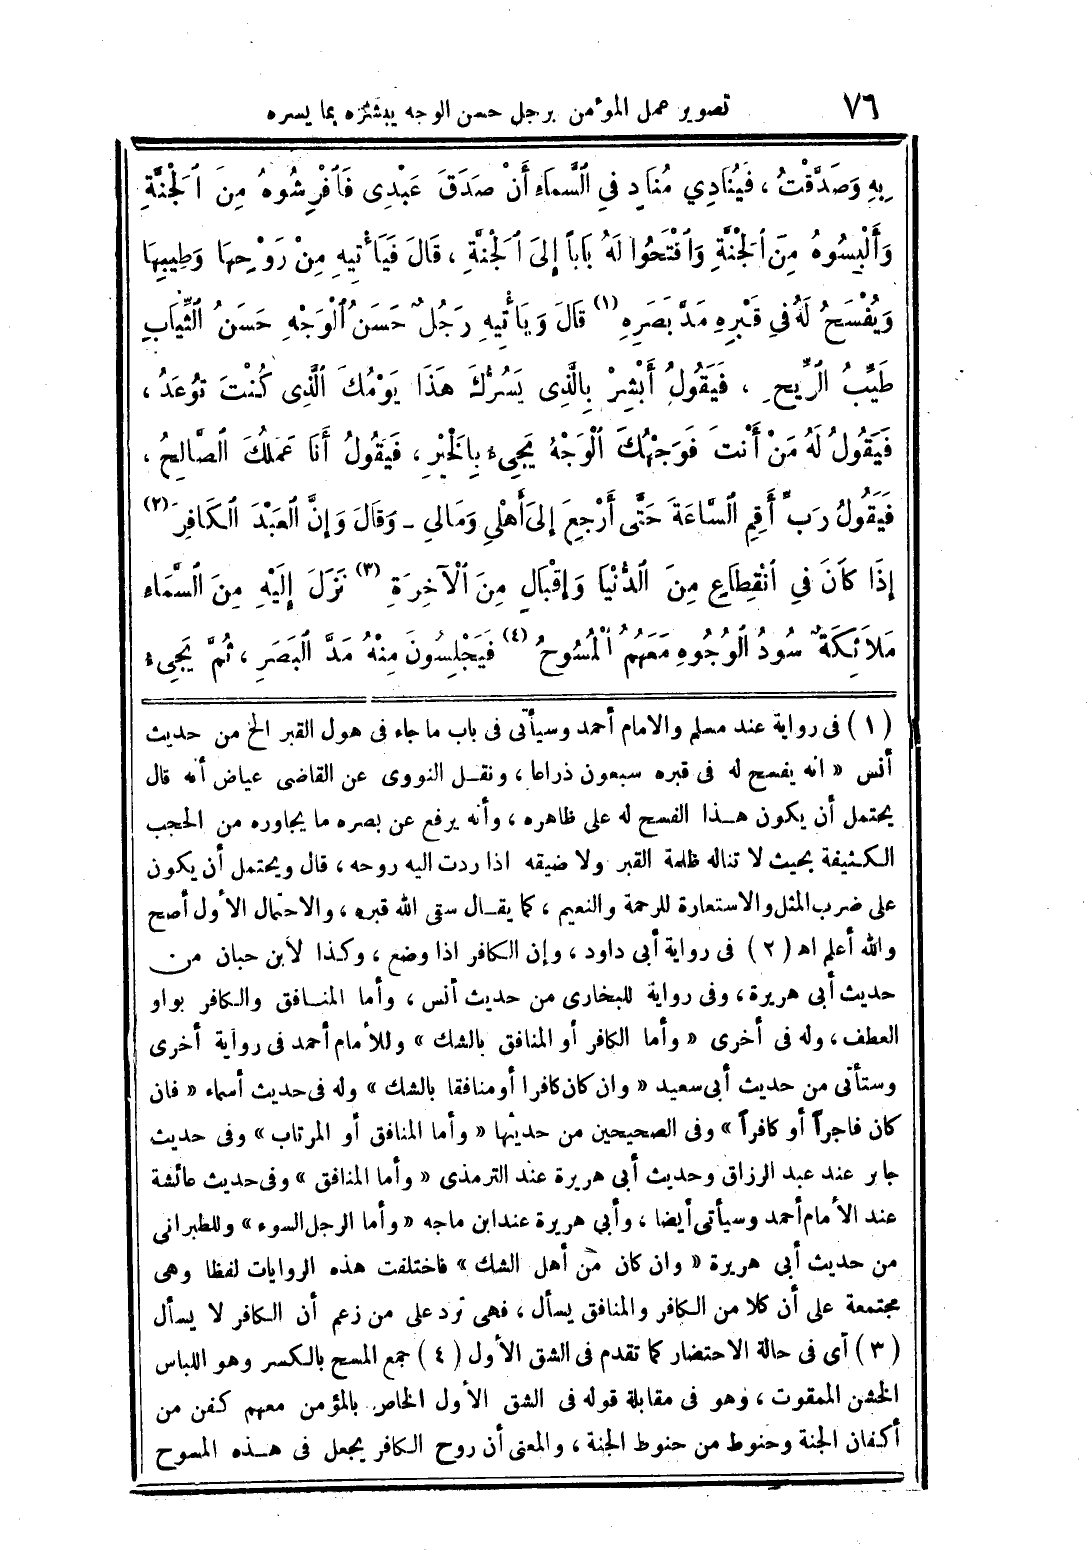 ٧٦ تصوير عمل المؤمن برجل حسن الوجه يبشره بما يسره
بِهِ وَصَدَّقْتُ ، فَيُنَادِي مُنَادٍ فِي ٱلسَّمَاءِ أَنْ صَدَقَ عَبْدِى فَأَفْرِشُوهُ مِنَ ٱلْجَنَّةِ
وَأَلْبِسُوهُ مِنَ ٱلْجَنَّةِ وَٱفْتَحُوا لَهُ بَاباً إِلَى ٱلْجَنَّةِ ، قَالَ فَيَأْتِيهِ مِنْ رَوْحِهَا وَطِيبِهَا
وَيُفْسَحُ لَهُ فِى قَبْرِهِ مَدَّ بَصَرِهِ (١) قَالَ وَيَأْتِيهِ رَجُلٌ حَسَنُ ٱلْوَجْهِ حَسَنُ ٱلثِّيَابِ
طَيِّبُ ٱلرِّيحِ ، فَيَقُولُ أَبْشِرْ بِالَّذِى يَسُرُّكَ هَذَا يَوْمُكَ ٱلَّذِى كُنْتَ تُوعَدُ ،
فَيَقُولُ لَهُ مَنْ أَنْتَ فَوَجْهُكَ ٱلْوَجْهُ يَجِىءُ بِالْخَيْرِ ، فَيَقُولُ أَنَا عَمَلُكَ ٱلصَّالِحُ ،
فَيَقُولُ رَبِّ أَقِمِ ٱلسَّاعَةَ حَتَّى أَرْجِعَ إِلَى أَهْلِي وَمَالِي ـ وَقَالَ وَإِنَّ ٱلعَبْدَ ٱلكَافِرَ (٢)
إِذَا كَانَ فِي ٱنْقِطَاعٍ مِنَ ٱلدُّنْيَا وَإِقْبَالٍ مِنَ ٱلْآخِرَةِ (٣) نَزَلَ إِلَيْهِ مِنَ ٱلسَّمَاءِ
مَلَائِكَةٌ سُودُ ٱلْوُجُوهِ مَعَهُمُ ٱلْمُسُوحُ (٤) فَيَجْلِسُونَ مِنْهُ مَدَّ ٱلبَصَرِ ، ثُمَّ يَجِىءُ
(١) فى رواية عند مسلم والامام أحمد وسيأتى فى باب ما جاء فى هول القبر الخ من حديث
أنس « انه يفسح له فى قبره سبعون ذراعا ، ونقل النووى عن القاضى عياض أنه قال
يحتمل أن يكون هذا الفسح له على ظاهره ، وأنه يرفع عن بصره ما يجاوره من الحجب
الكثيفة بحيث لا تناله ظلمة القبر ولا ضيقه اذا ردت اليه روحه ، قال ويحتمل أن يكون
على ضرب المثل والاستعارة للرحمة والنعيم ، كما يقال سقى الله قبره ، والاحتمال الأول أصح
والله أعلم اه (٢) فى رواية أبى داود ، وإن الكافر اذا وضع ، وكذا لأبن حبان من
حديث أبى هريرة ، وفى رواية للبخارى من حديث أنس ، وأما المنافق والكافر بواو
العطف ، وله فى أخرى « وأما الكافر أو المنافق بالشك » وللأمام أحمد فى رواية أخرى
وستأتى من حديث أبى سعيد « وان كان كافرا أو منافقا بالشك » وله فى حديث أسماء « فان
كان فاجراً أو كافراً » وفى الصحيحين من حديثها « وأما المنافق أو المرتاب » وفى حديث
جابر عند عبد الرزاق وحديث أبى هريرة عند الترمذى « وأما المنافق » وفى حديث عائشة
عند الأمام أحمد وسيأتى أيضا ، وأبي هريرة عند ابن ماجه « وأما الرجل السوء » وللطبرانى
من حديث أبى هريرة « وان كان من أهل الشك » فاختلفت هذه الروايات لفظا وهى
مجتمعة على أن كلا من الكافر والمنافق يسأل ، فهى ترد على من زعم أن الكافر لا يسأل
(٣) أى فى حالة الاحتضار كما تقدم فى الشق الأول (٤) جمع المسح بالكسر وهو اللباس
الخشن الممقوت ، وهو فى مقابلة قوله فى الشق الأول الخاص بالمؤمن معهم كفن من
أكفان الجنة وحنوط من حنوط الجنة ، والمعنى أن روح الكافر يجعل فى هذه المسوح